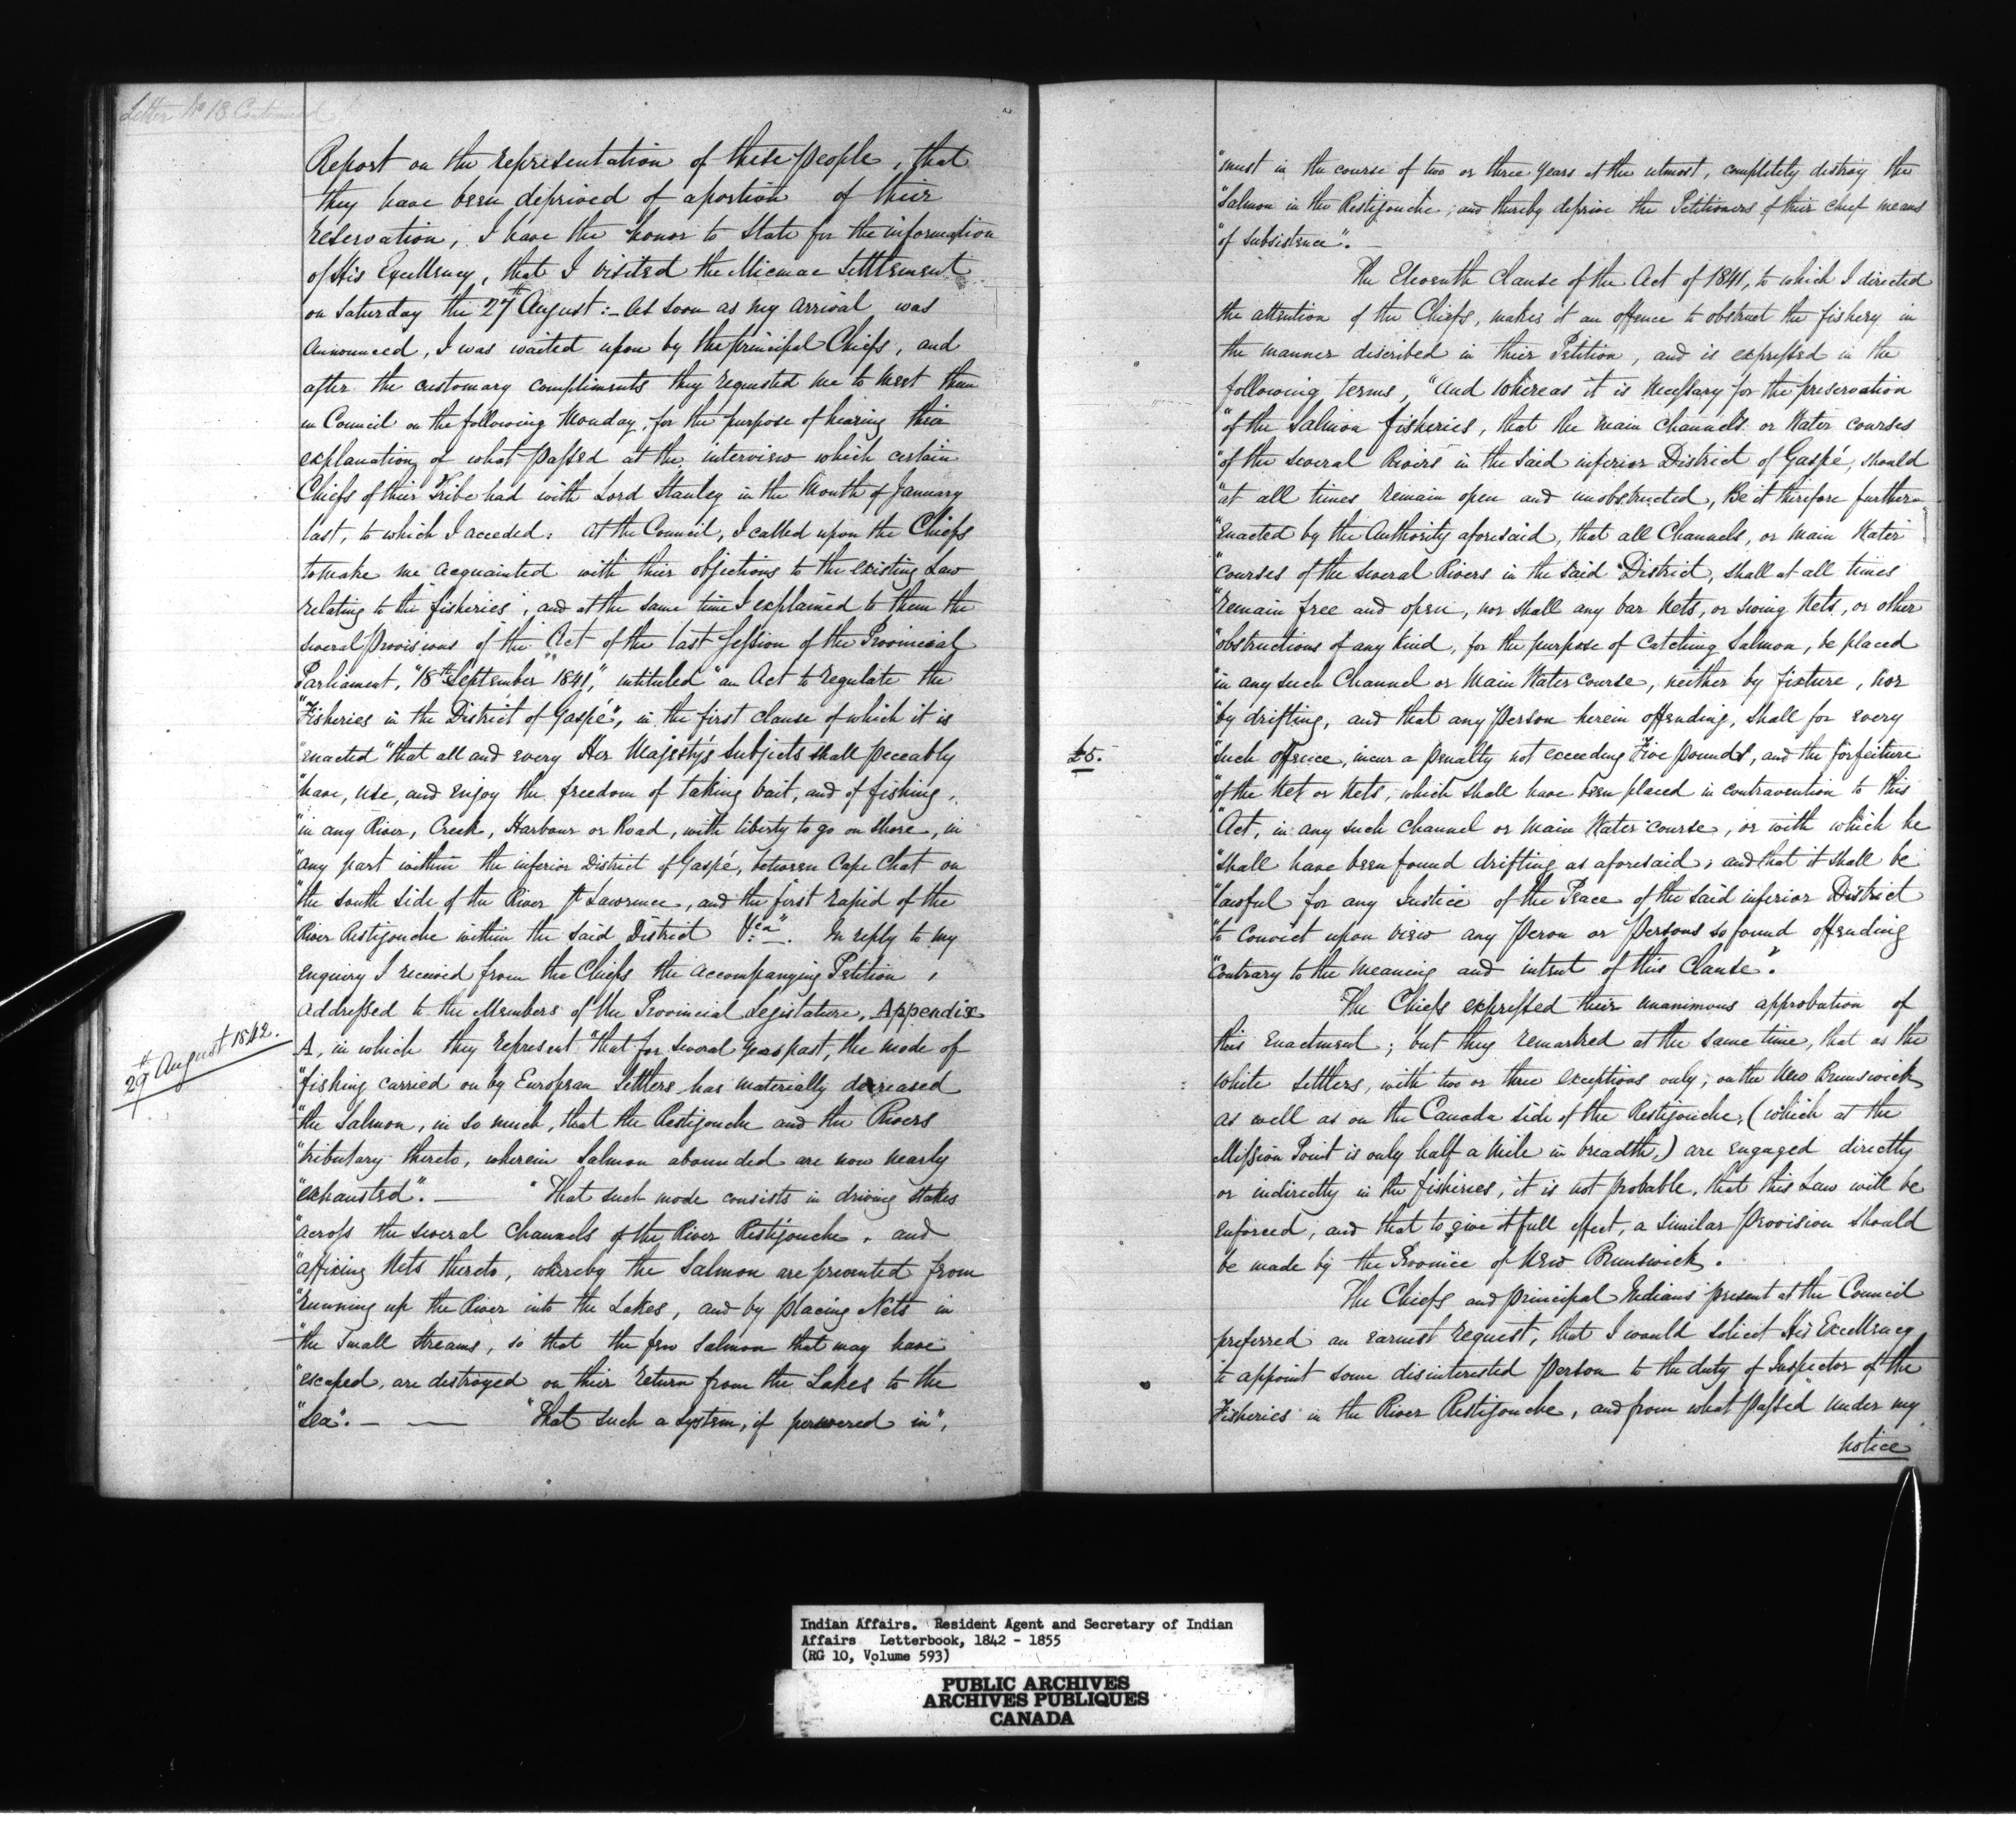 Letter No 18 Continued
Report on the representation of these people, that
they have been deprived of a portion of their
reservation, I have the honor to State for the information
of His Excellency, that I visited the Micmac Settlement
on Saturday the 27th August:- As soon as my arrival was
announced, I was waited upon by the principal Chiefs, and
after the customary compliments they requested me to meet them
in Council on the following Monday, for the purpose of hearing their
explanation of what passed at the interview which certain
Chiefs of their Tribe had with Lord Stanley in the Month of January
last, to which I acceded: at the Council, I called upon the Chiefs
to make me acquainted with their objections to the existing Law
relating to the fisheries; and at the same time I explained to them the
several provisions of the Act of the last Session of the Provincial
Parliament, "18th September 1841," intituled "an Act to regulate the
"Fisheries in the District of Gaspé", in the first clause of which it is
"enacted "that all and every Her Majesty's Subjects shall peceably
"have, use, and enjoy the freedom of taking bait, and of fishing,
"in any River, Creek, Harbour or Road, with liberty to go on shore, in
"any part within the inferior District of Gaspé, between Cape Chat on
"the south side of the River St Lawrence, and the first rapid of the
"River Restigouche within the said District &ca". In reply to my
enquiry I received from the Chiefs the accompanying Petition,
addressed to the Members of the Provincial Legislature, Appendix
29th August 1842.
A, in which they represent "that for several years past, the mode of
"fishing carried on by European Settlers has materially decreased
"the Salmon, in so much, that the Restigouche and the Rivers
"tributary thereto, wherein Salmon abounded are now nearly
"exhausted". — "That such mode consists in driving stakes
"across the several Channels of the River Restigouche, and
"affixing Nets thereto, whereby the Salmon are prevented from
"running up the River into the Lakes, and by placing Nets in
"the small streams, so that the few Salmon that may have
"escaped, are destroyed on their return from the Lakes to the
"Sea". — — "That such a system, if persevered in",
"must in the course of two or three years at the utmost, completely destroy the
"Salmon in the Restigouche; and thereby deprive the Petitioners of their chief means
"of subsistence". —
The Eleventh Clause of the Act of 1841, to which I directed
the attention of the Chiefs, makes it an offence to obstruct the fishery in
the manner discribed in their Petition, and is expressed in the
following terms, "And whereas it is necessary for the preservation
"of the Salmon fisheries, that the main channels or Water courses
"of the several Rivers in the said inferior District of Gaspé, should
"at all times remain open and unobstructed, Be it therefore further
"enacted by the Authority aforesaid, that all Channels, or Main Water
"Courses of the several Rivers in the said District, shall at all times
"remain free and open, nor shall any bar Nets, or swing Nets, or other
"obstructions of any kind, for the purpose of Catching Salmon, be placed
"in any such Channel or Main Water Course, neither by fixture, nor
"by drifting, and that any person herein offending, shall for every
£5.
"such offence, incur a penalty not exceeding Five pounds, and the forfeiture
"of the Net or Nets, which shall have been placed in contravention to this
"Act, in any such channel or main Water course, or with which he
"shall have been found drifting as aforesaid; and that it shall be
"lawful for any Justice of the Peace of the said inferior District
"to Convict upon view any Peron or Persons so found offending
"contrary to the meaning and intent of this Clause".
The Chiefs expressed their unanimous approbation of
this Enactment; but they remarked at the same time, that as the
white Settlers, with two or three exceptions only, on the New Brunswick
as well as on the Canada side of the Restigouche, (which at the
Mission Point is only half a mile in breadth,) are engaged directly
or indirectly in the fisheries, it is not probable, that this Law will be
enforced; and that to give it full effect, a similar provision should
be made by the Province of New Brunswick.
The Chiefs and principal Indians present at the Council
preferred an earnest request, that I would solicit His Excellency
to appoint some disinterested person to the duty of Inspector of the
Fisheries in the River Restigouche, and from what passed under my
notice
Indian Affairs. Resident Agent and Secretary of Indian
Affairs Letterbook, 1842 - 1855
(RG 10, Volume 593)
PUBLIC ARCHIVES
ARCHIVES PUBLIQUES
CANADA